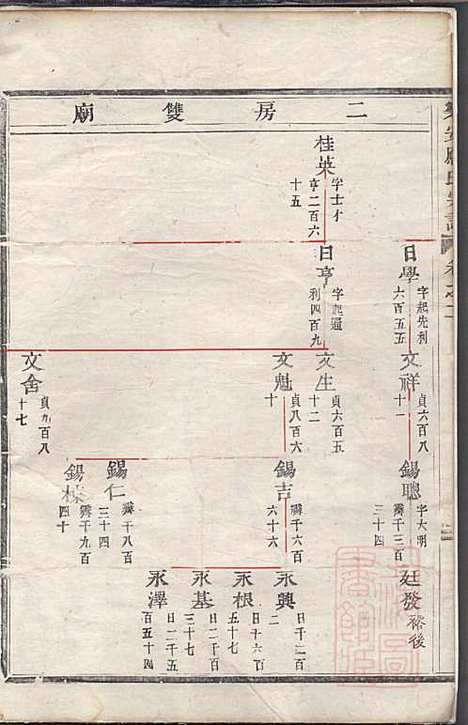 二房雙廟
桂英
字士才
亨二百六
十五
日學
字起先利
六百五五
日亨
字起通
利四百九
文祥
貞六百八
十一
文生
貞六百五
十二
文魁
貞八百六
十
文舍
貞九百八
十七
錫聰
字大明
霽千三百
三十四
錫吉
霽千六百
六十六
錫仁
霽千八百
三十四
錫榛
霽千九百
四十
廷發
裕後
永興
二
永根
日千六百
五十七
永基
日二千五
三十七
永澤
日二千五
百五十四